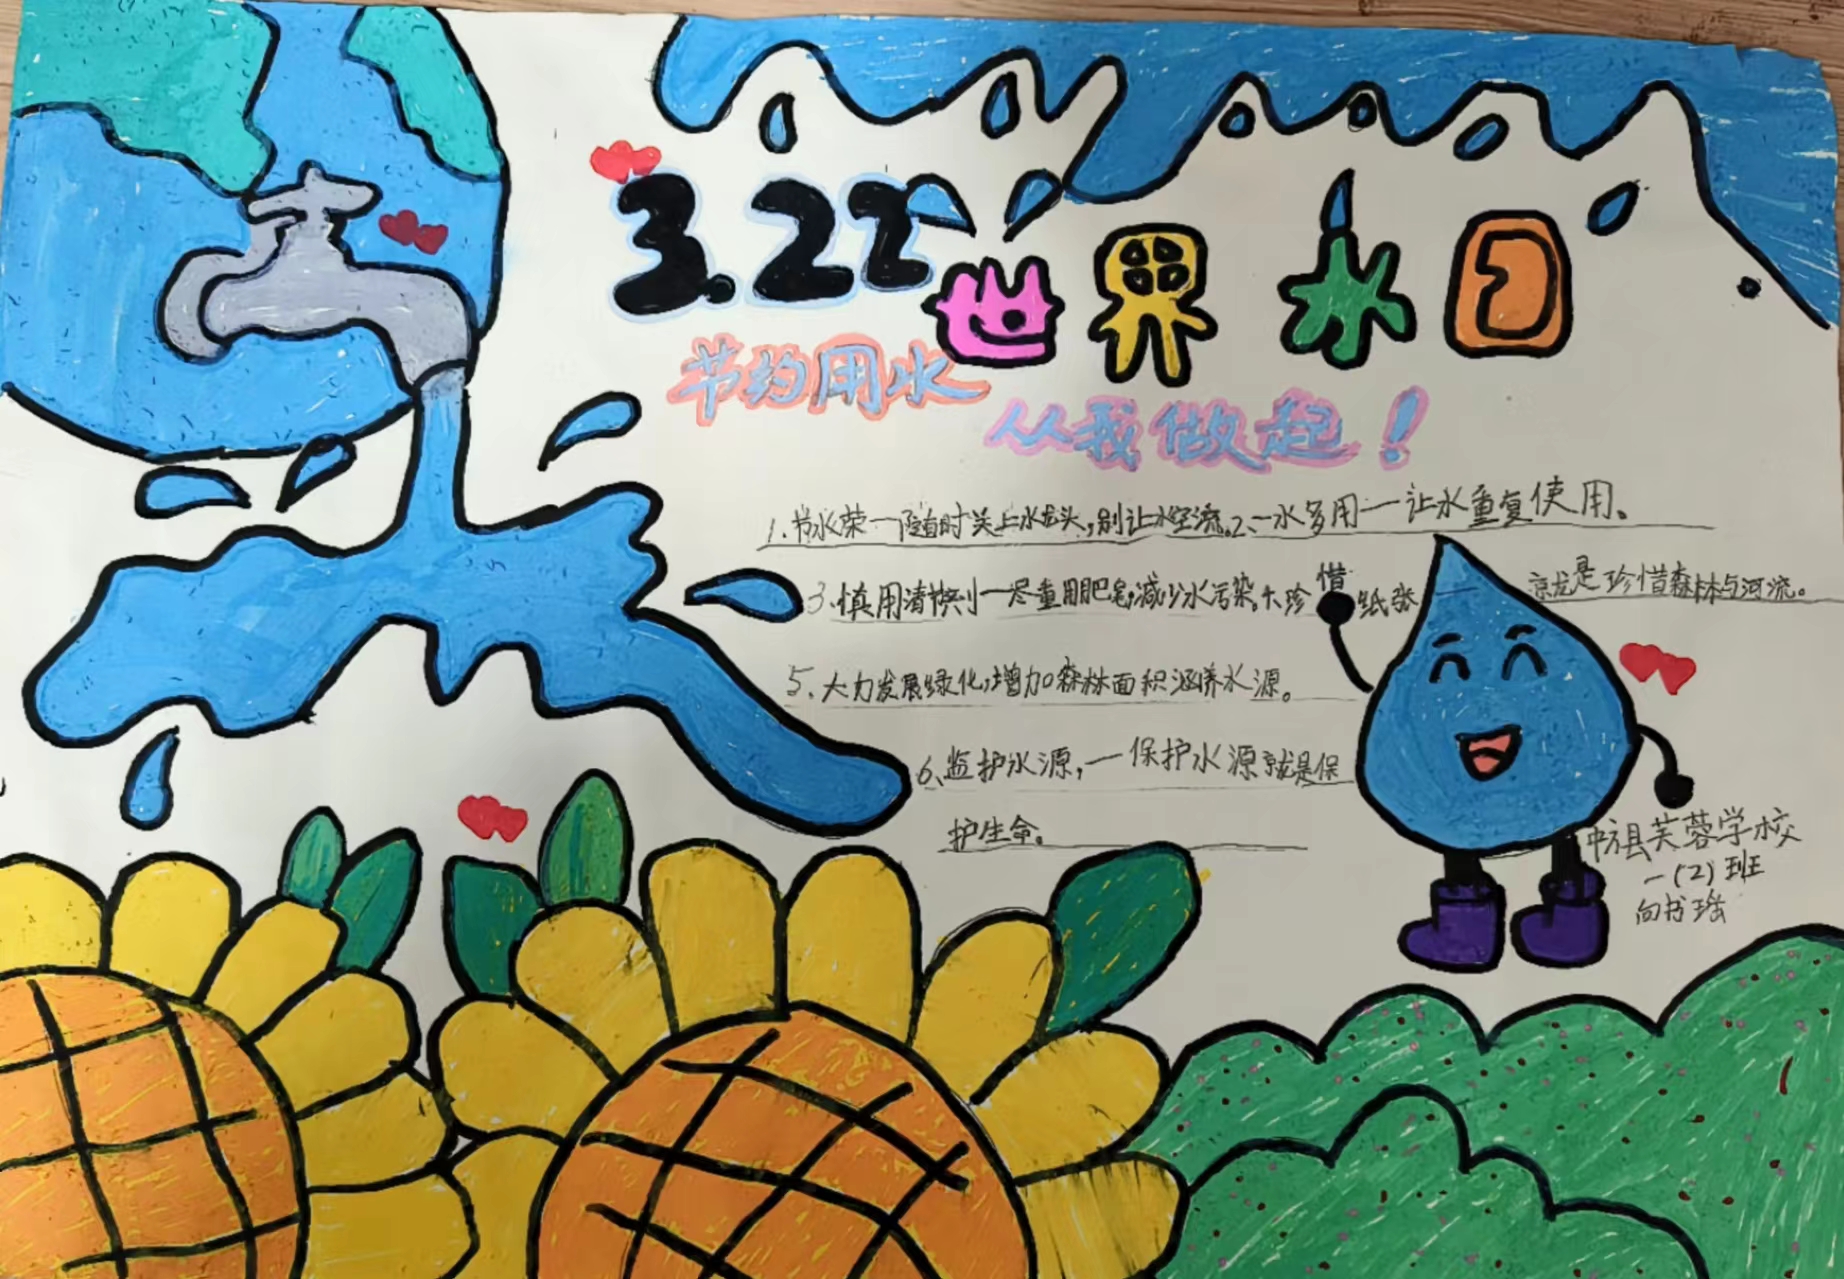 3.22世界水日
节约用水
从我做起！
1.节水荣一随时关上水龙头,别让水空流。2、一水多用一让水重复使用。
3、慎用清洁剂一尽量用肥皂,减少水污染。4、珍惜纸张就是珍惜森林与河流。
5、大力发展绿化,增加森林面积涵养水源。
6、监护水源,一保护水源就是保
护生命。
中方县芙蓉学校
一(2)班
向书瑶